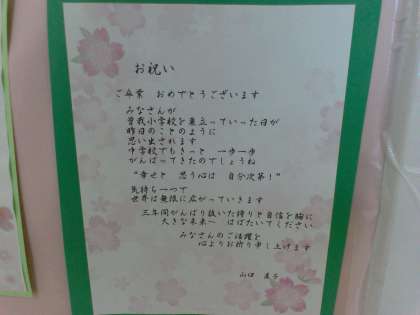 お祝い
ご卒業 おめでとうございます
みなさんが
曽我小学校を巣立っていった日が
昨日のことのように
思い出されます
中学校でもきっと 一歩一歩
がんばってきたのでしょうね
“幸せと 思う心は 自分次第!”
気持ち一つで
世界は無限に広がっていきます
三年間がんばり抜いた誇りと自信を胸に
大きな未来へ はばたいてください
みなさんのご活躍を
心よりお祈り申し上げます
山口